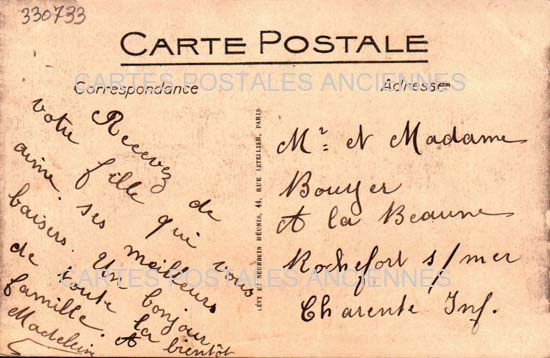 330733
CARTE POSTALE
CARTES POSTALES ANCIENNES
Correspondance
Adresse
Recevez de
votre fille qui vous
aime ses meilleurs
baisers. Un bonjour
de toute la
famille. A bientôt
Madelein
LÉVY ET NEURDEIN RÉUNIS, 44, RUE LETELLIER, PARIS
Mr. et Madame
Bouyer
A la Beaune
Rochefort s/mer
Charente Inf.
CARTES POSTALES ANCIENNES